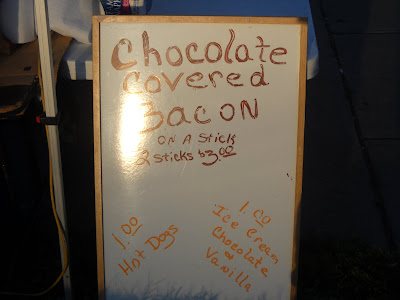 Chocolate
Covered
Bacon
ON A Stick
2 Sticks $3.00
1.00
Hot Dogs
1.00
Ice Cream
Chocolate
&
Vanilla